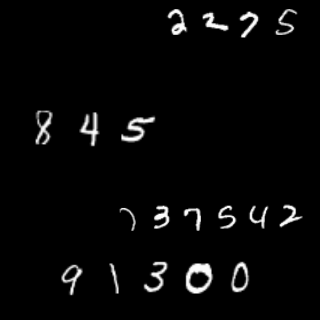 2275
845
737542
91300